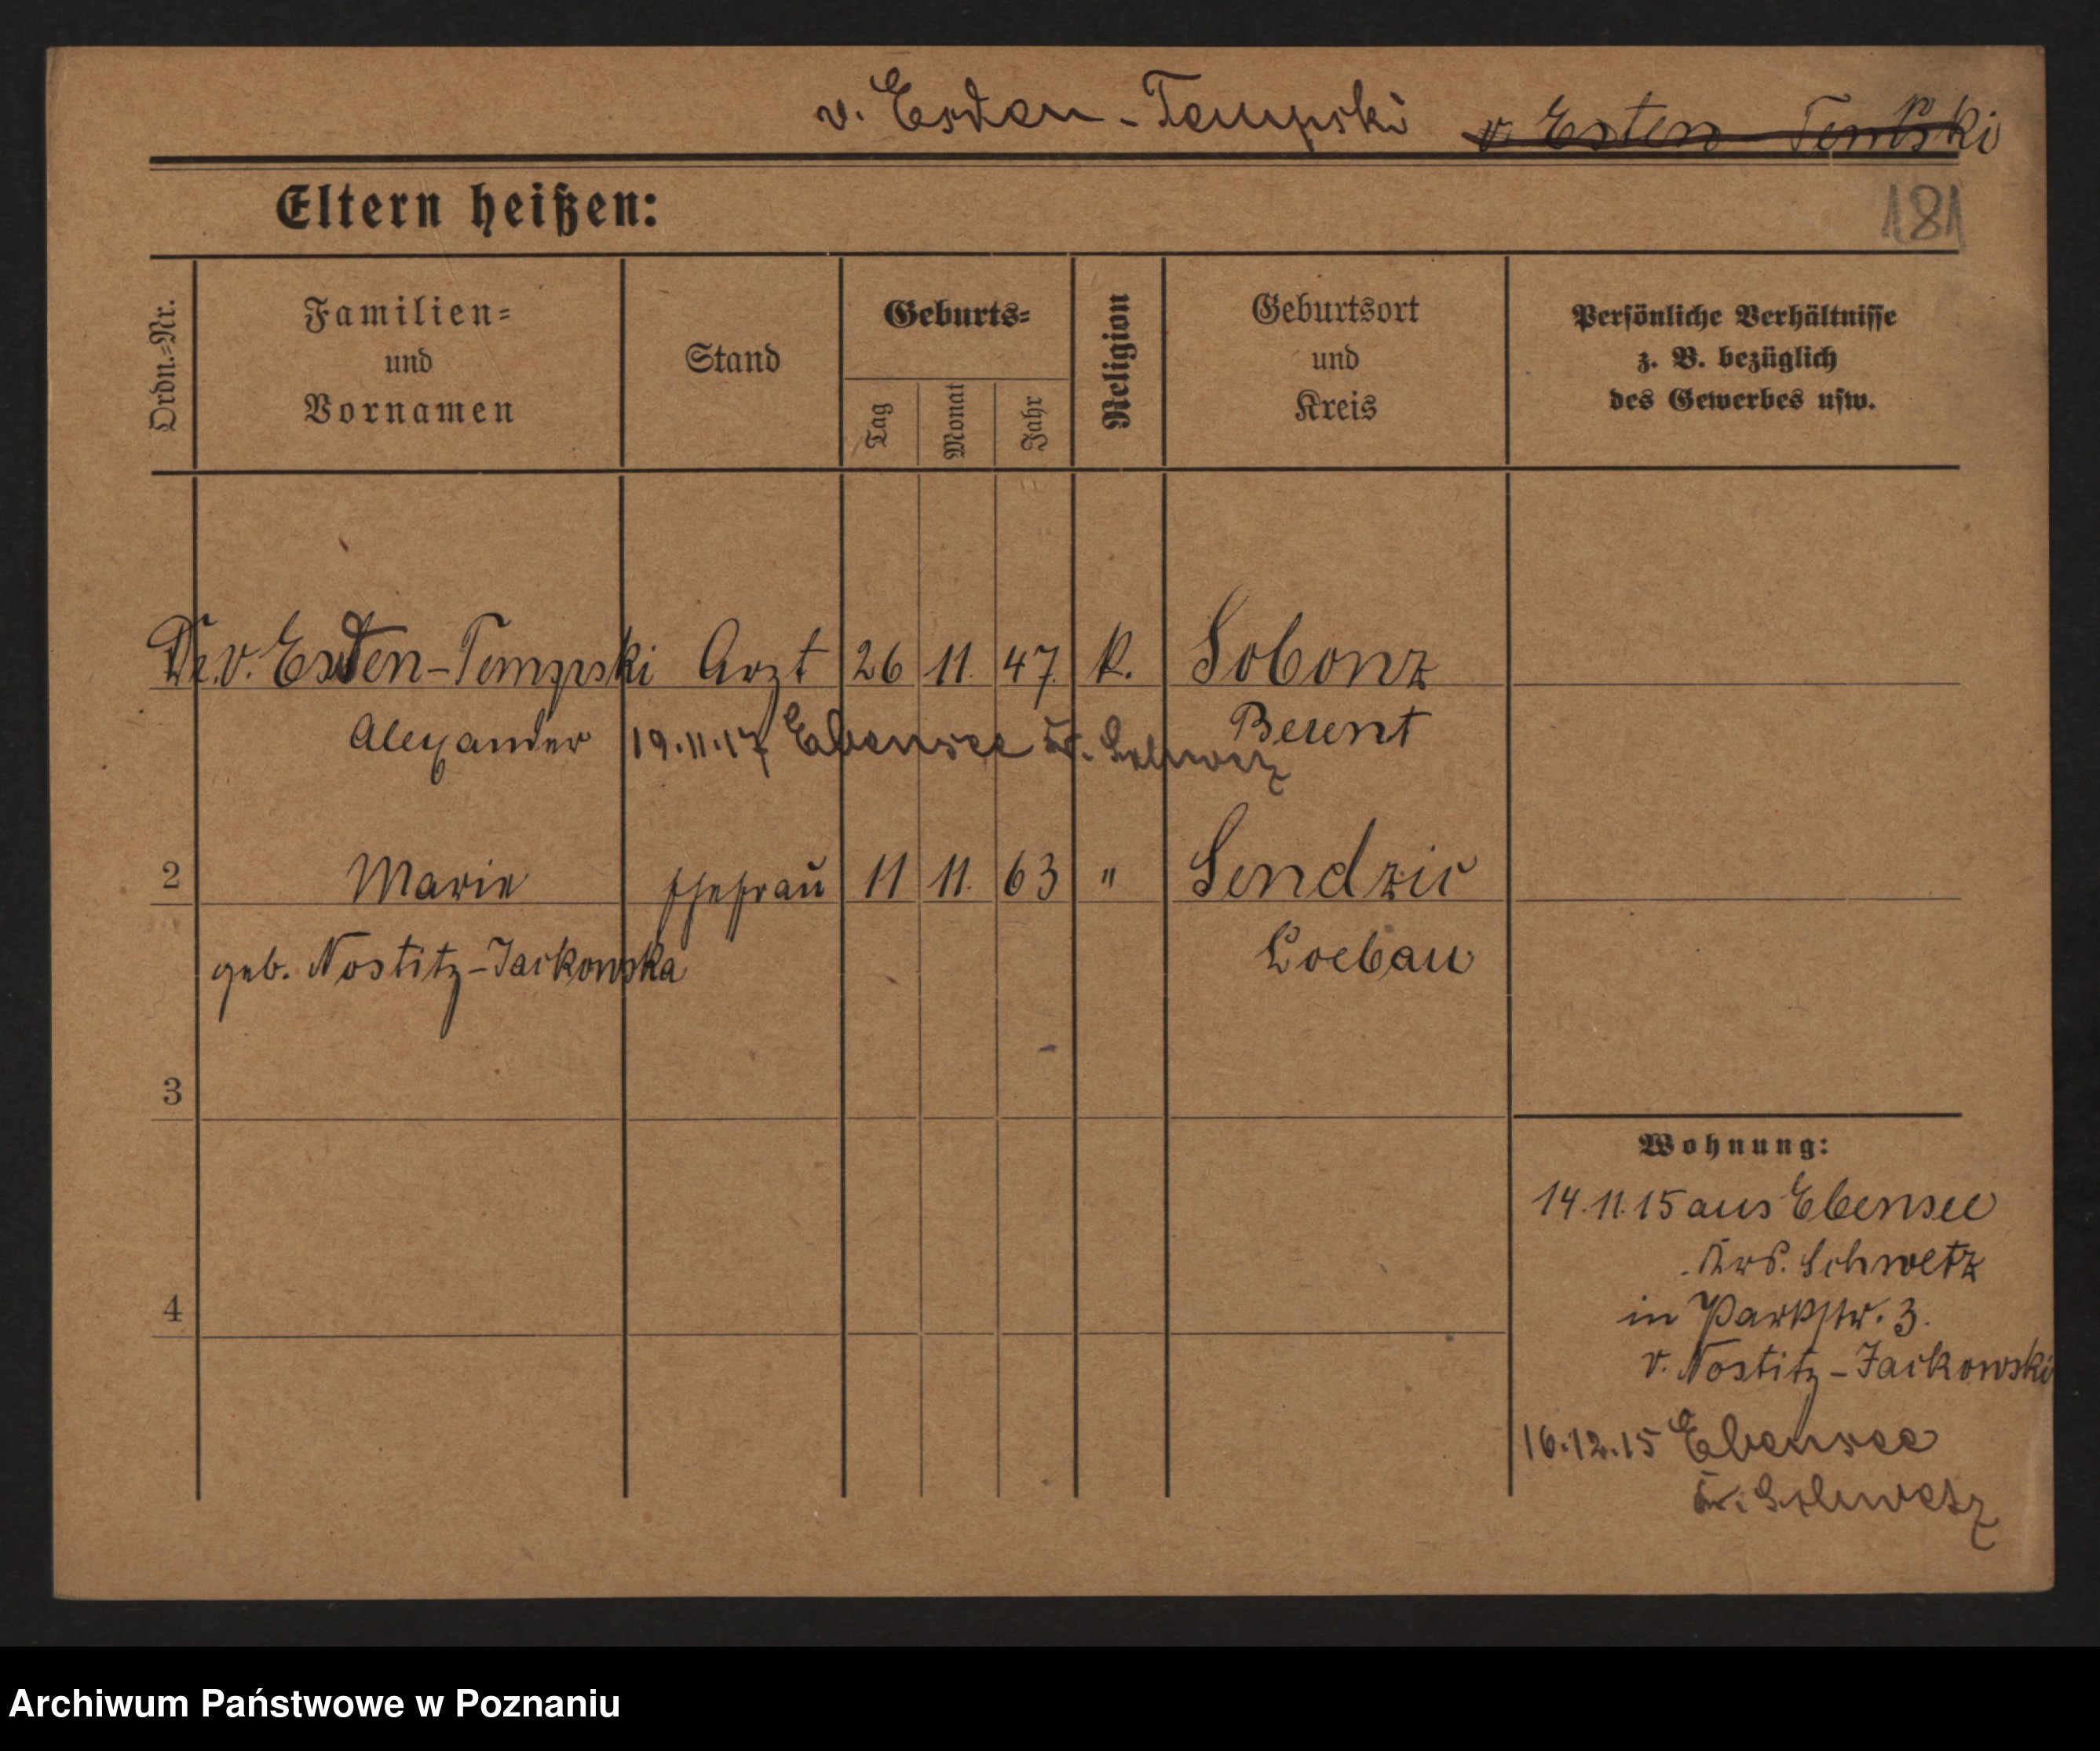 v. Esden-Tempski v Esten-Tempski
Eltern heißen:
181
Ordn.=Nr.
Familien=
und
Vornamen
Stand
Geburts=
Tag
Monat
Jahr
Religion
Geburtsort
und
Kreis
Persönliche Verhältnisse
z. B. bezüglich
des Gewerbes usw.
Dr. v. Esden-Tempski Arzt 26 11. 47. k. Sobonz
Alexander 19.11.17 Ebensee Kr. Schwetz Berent
2 Marie Ehefrau 11 11. 63 " Sendzic
geb. Nostitz-Jackowska Loebau
3
Wohnung:
14.11.15 aus Ebensee
Krs. Schwetz
4
in Parkstr. 3.
v. Nostitz-Jackowski
16.12.15 Ebensee
Kr. Schwetz
Archiwum Państwowe w Poznaniu